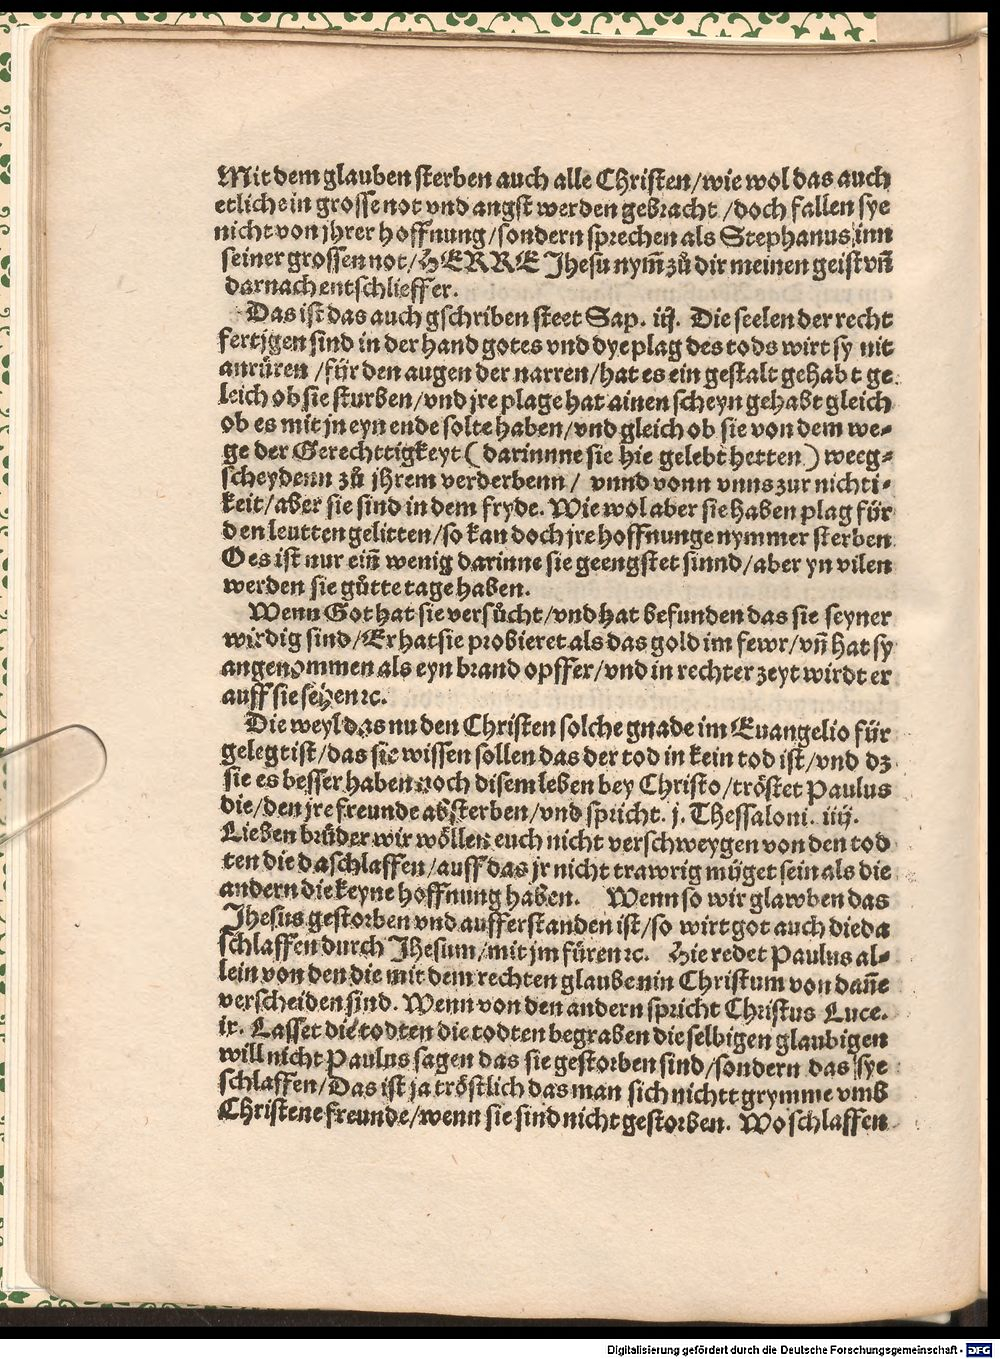 Mit dem glauben sterben auch alle Christen/wie wol das auch
etliche in grosse not vnd angst werden gebracht /doch fallen sye
nicht von jhrer hoffnung/sondern sprechen als Stephanus inn
seiner grossen not/HERRE Jhesu nym̄ zů dir meinen geist vn̄
darnach entschlieffer.
Das ist das auch gschriben steet Sap. iij. Die seelen der recht
fertjgen sind in der hand gotes vnd dye plag des tods wirt sy nit
anrüren /für den augen der narren/hat es ein gestalt gehabt ge
leich ob sie sturben/vnd jre plage hat ainen scheyn gehabt gleich
ob es mit jn eyn ende solte haben/vnd gleich ob sie von dem we⸗
ge der Gerechttigkeyt ( darinnne sie hie gelebt hetten ) weeg⸗
scheydenn zů jhrem verderbenn / vnnd vonn vnns zur nichti⸗
keit/aber sie sind in dem fryde. Wie wol aber sie haben plag für
den leutten gelitten/so kan doch jre hoffnunge nymmer sterben
O es ist nur ein̄ wenig darinne sie geengstet sinnd/aber yn vilen
werden sie gůtte tage haben.
Wenn Got hat sie versůcht/vnd hat befunden das sie seyner
wirdig sind/Er hat sie probieret als das gold im fewr/vn̄ hat sy
angenommen als eyn brand opffer/vnd in rechter zeyt wirdt er
auff sie sehen ꝛc.
Die weyl das nu den Christen solche gnade im Euangelio für
gelegt ist/das sie wissen sollen das der tod in kein tod ist/vnd dz
sie es besser haben noch disem leben bey Christo/tröstet Paulus
die/den jre freunde absterben/vnd spricht. j. Thessaloni. iiij.
Lieben brůder wir wöllen euch nicht verschweygen von den tod
ten die da schlaffen/auff das jr nicht trawrig müget sein als die
andern die keyne hoffnung haben. Wenn so wir glawben das
Jhesus gestorben vnd aufferstanden ist/so wirt got auch die da
schlaffen durch Jhesum/mit jm füren ꝛc. Hie redet Paulus al⸗
lein von den die mit dem rechten glauben in Christum von dan̄e
verscheiden sind. Wenn von den andern spricht Christus Luce.
ix. Lasset die todten die todten begraben die selbigen glaubigen
will nicht Paulus sagen das sie gestorben sind/sondern das sye
schlaffen/Das ist ja tröstlich das man sich nichtt grymme vmb
Christene freunde/wenn sie sind nicht gestorben. Wo schlaffen
Digitalisierung gefördert durch die Deutsche Forschungsgemeinschaft - DFG